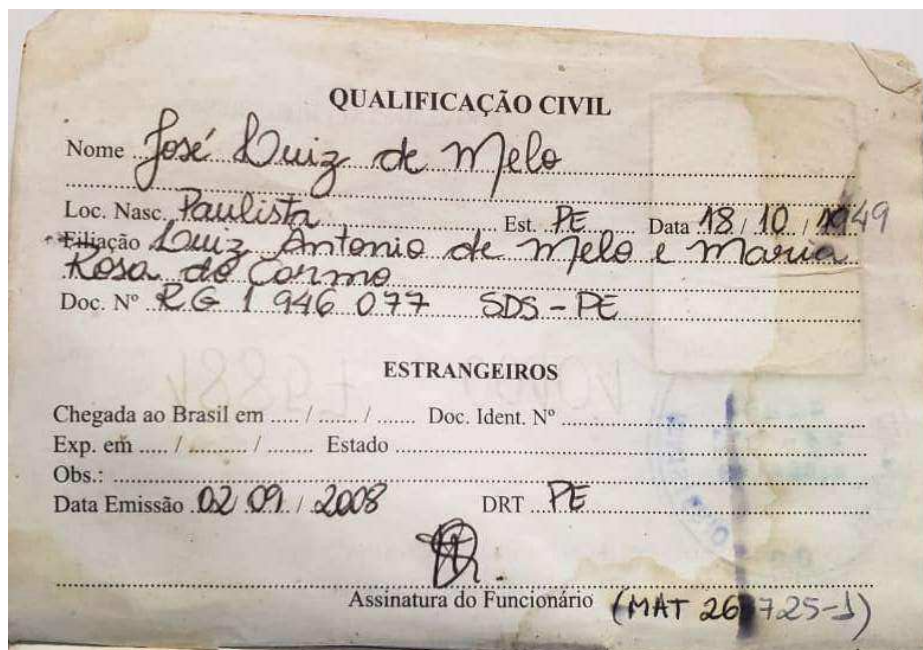 QUALIFICAÇÃO CIVIL
Nome José Luiz de Melo
Loc. Nasc. Paulista Est. PE Data 18 / 10 / 1949
Filiação Luiz Antonio de Melo e Maria
Rosa do Carmo
Doc. Nº RG 1 946 077 SDS - PE
ESTRANGEIROS
Chegada ao Brasil em ..... / ....... / ....... Doc. Ident. Nº
Exp. em ..... / .......... / ........ Estado
Obs.:
Data Emissão 02 / 09 / 2008 DRT PE
Assinatura do Funcionário (MAT 26 725-1)